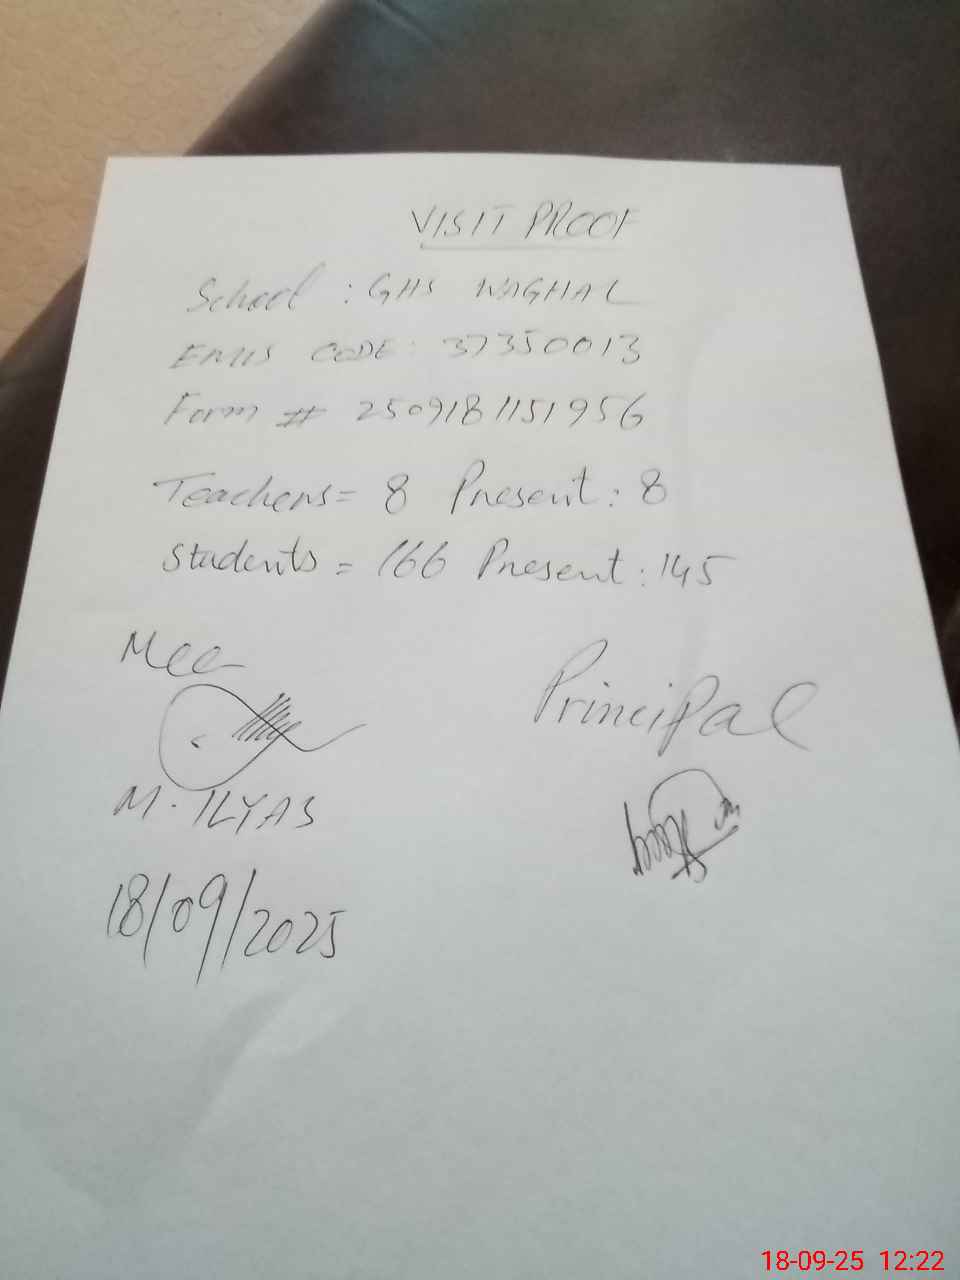 VISIT PROOF
School : GHS WAGHAL
EMIS CODE: 37350013
Form # 2509181151956
Teachers= 8 Present: 8
Students = 166 Present: 145
Mee
Principal
M. ILYAS
18/09/2025
18-09-25 12:22